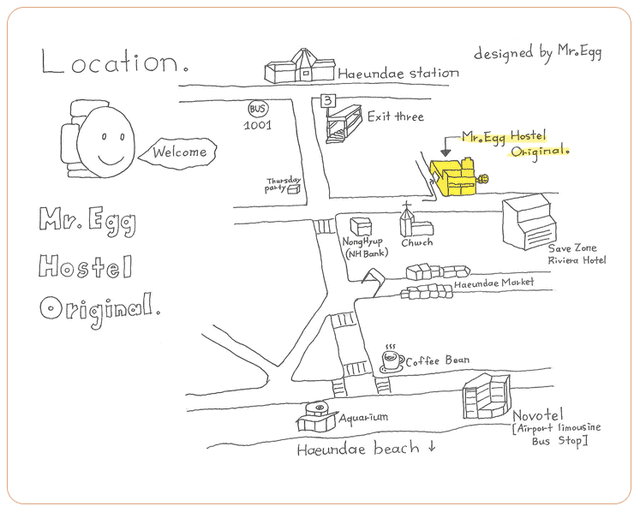 Location.
designed by Mr.Egg
Haeundae station
BUS
1001
3
Exit three
Welcome
Mr.Egg Hostel
Original.
Thursday
party
Mr.Egg
Hostel
Original.
NongHyup
(NH Bank)
Church
Save Zone
Riviera Hotel
Haeundae Market
Coffee Bean
Aquarium
Novotel
[Airport limousine
Bus Stop]
Haeundae beach ↓